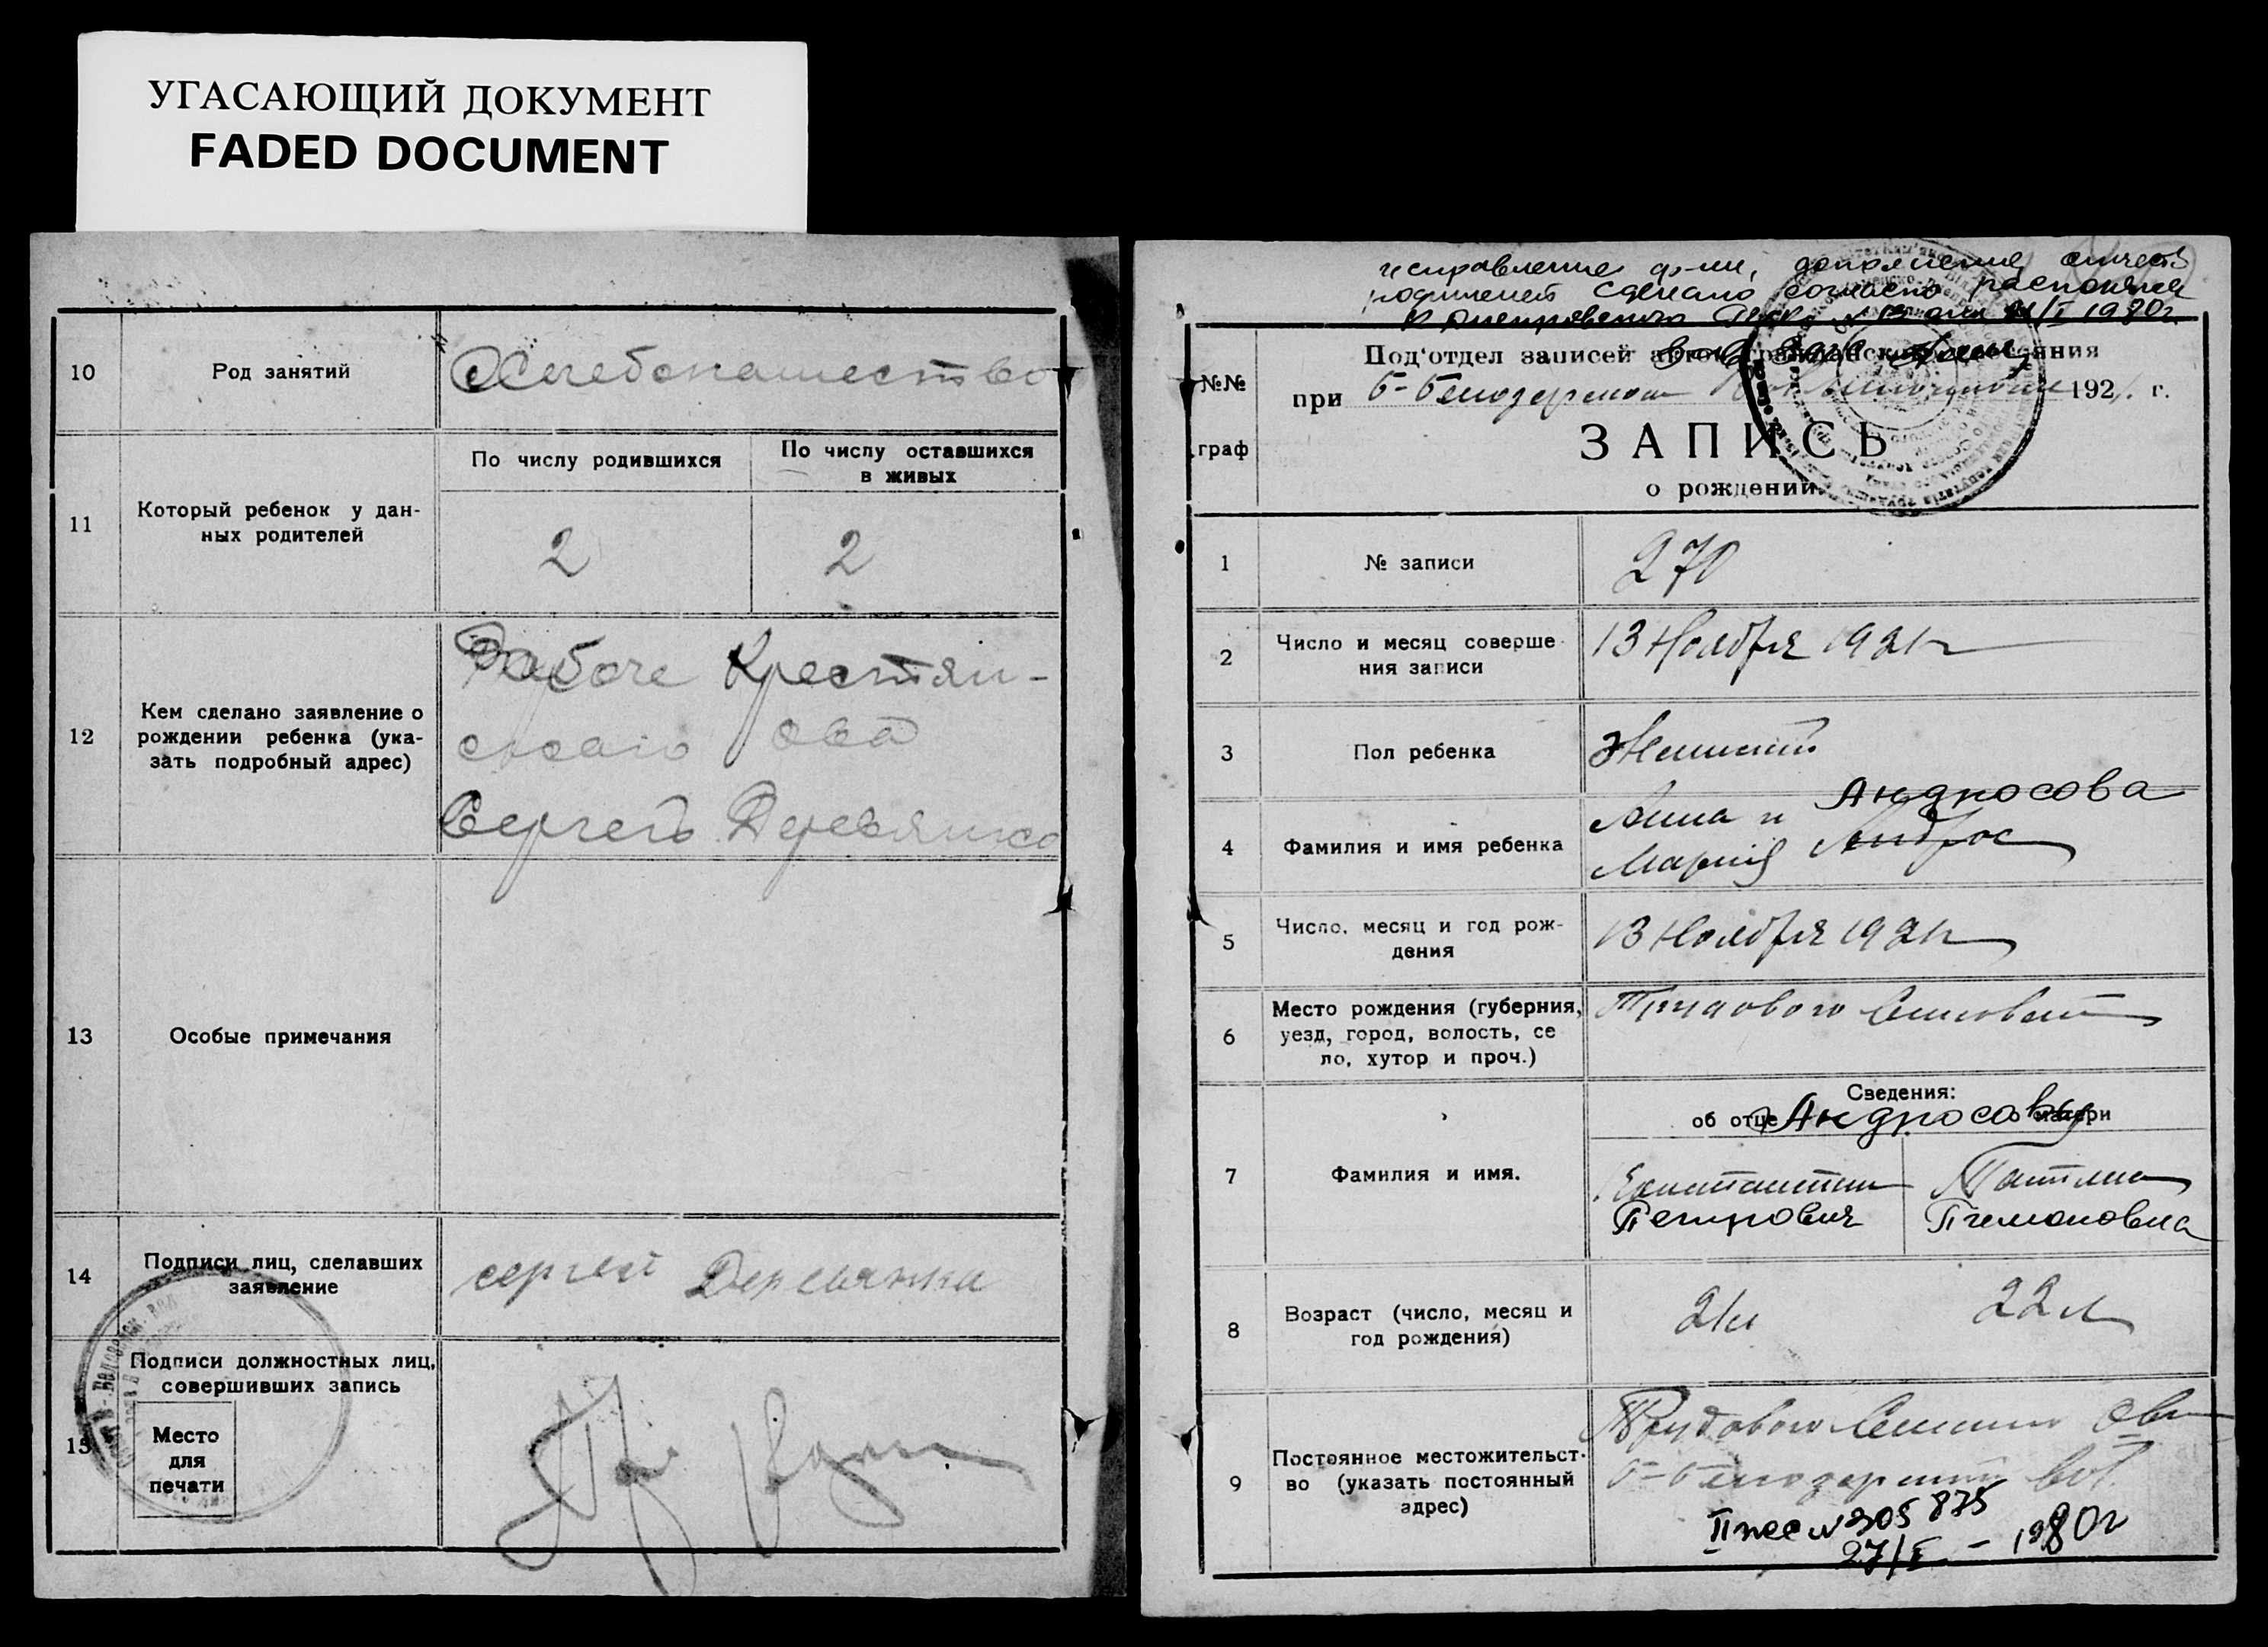 УГАСАЮЩИЙ ДОКУМЕНТ
FADED DOCUMENT
10
Род занятий
Хлебопашество
11
Который ребенок у дан-
ных родителей
По числу родившихся
По числу оставшихся
в живых
2
2
12
Кем сделано заявление о
рождении ребенка (ука-
зать подробный адрес)
Рабоче Крестян-
скаго
Сергей Деревянко
13
Особые примечания
14
Подписи лиц, сделавших
заявление
сергей Деревянка
15
Подписи должностных лиц,
совершивших запись
Место
для
печати
исправление ф-лии, дополнение отчеств
родителей сделано согласно
№№
граф
Под'отдел записей актов гражданского состояния
при 1921 г.
ЗАПИСЬ
о рождении
1
№ записи
270
2
Число и месяц соверше
ния записи
13 Ноября 1921 г
3
Пол ребенка
Женский
4
Фамилия и имя ребенка
Андросова
Анна и
Мария Андрос
5
Число, месяц и год рож-
дения
13 Ноября 1921 г
6
Место рождения (губерния,
уезд, город, волость, се
ло, хутор и проч.)
Трудового
7
Фамилия и имя.
Сведения:
об отце Андросовы матери
Константин
Петрович
Татиана
8
Возраст (число, месяц и
год рождения)
21 л
22 л
9
Постоянное местожительст-
во (указать постоянный
адрес)
Трудового
№ 305875
27/I - 1980 г